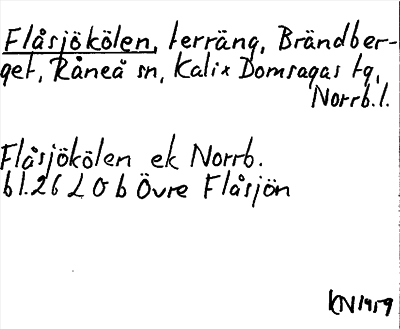 Flåsjökölen, terräng, Brändber-
get, Råneå sn, Kalix Domsagas tg,
Norrb.l.
Flåsjökölen ek Norrb.
bl.26 L 0 b Övre Flåsjön
KN 1959